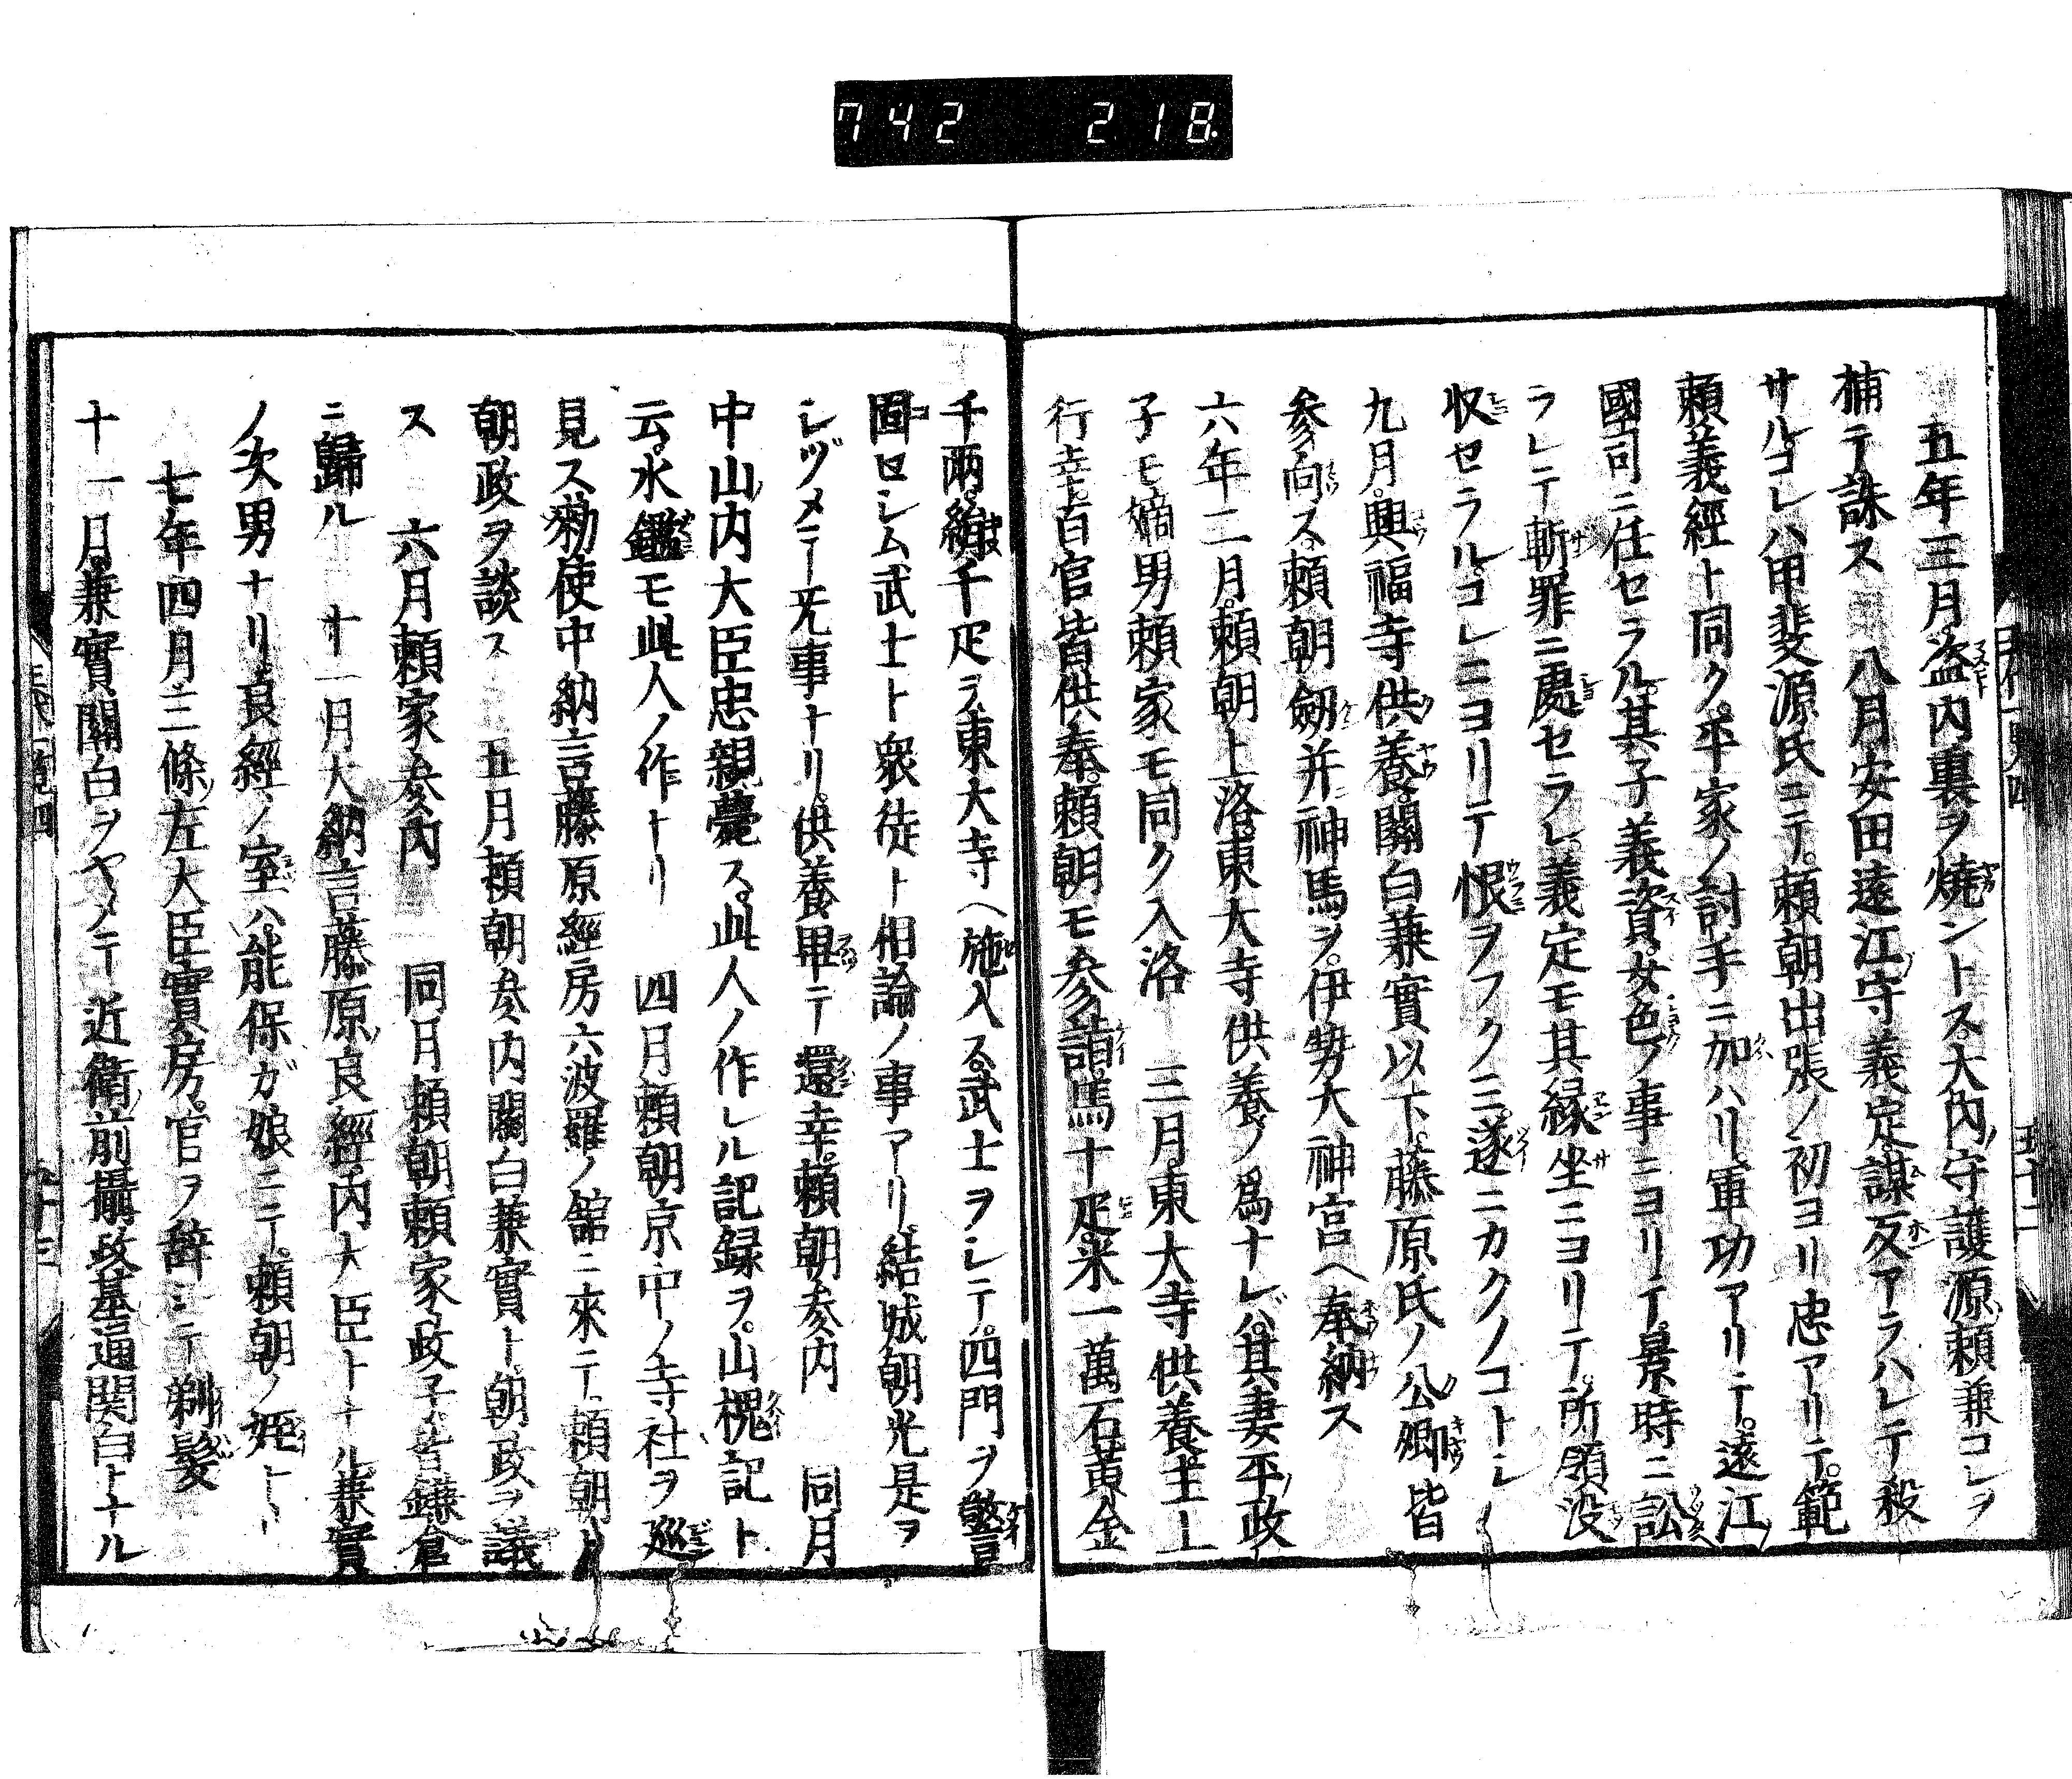 742 218.
五年三月盗内裏ヲ燒ントス大内守護源頼兼コレヲ
捕テ誅ス 八月安田遠江守義定謀反アラハレテ殺
サルコレハ甲斐源氏ニテ頼朝出張ノ初ヨリ忠アリテ範
頼義經ト同ク平家ノ討手ニ加ハリ軍功アリテ遠江
國司ニ任セラル其子義資女色ノ事ニヨリテ景時ニ訟
ラレテ斬罪ニ處セラレ義定モ其縁坐ニヨリテ所領没
収セラルコレニヨリテ恨ヲフクミ遂ニカクノコトシ
九月興福寺供養關白兼實以下藤原氏ノ公卿皆
参向ス頼朝劔并神馬ヲ伊勢大神宮ヘ奉納ス
六年二月頼朝上洛東大寺供養ノ爲ナレバ其妻平政
子モ嫡男頼家モ同ク入洛 三月東大寺供養主上
行幸百官皆供奉頼朝モ参詣馬十疋米一萬石黄金
千兩絹千疋ヲ東大寺ヘ施入ス武士ヲシテ四門ヲ警
固セシム武士ト衆徒ト相論ノ事アリ結城朝光是ヲ
シヅメテ无事ナリ供養畢テ還幸頼朝参内 同月
中山内大臣忠親薨ス此人ノ作レル記録ヲ山槐記ト
云水鑑モ此人ノ作ナリ 四月頼朝京中ノ寺社ヲ巡
見ス勅使中納言藤原經房六波羅ノ舘ニ來テ頼朝ト
朝政ヲ談ス 五月頼朝参内關白兼實ト朝政ヲ議
ス 六月頼家参内 同月頼朝頼家政子皆鎌倉
ニ歸ル 十一月大納言藤原良經内大臣トナル兼實
ノ次男ナリ良經ノ室ハ能保ガ娘ニテ頼朝ノ姪ナリ
七年四月三條左大臣實房官ヲ辭シテ剃髪
十一月兼實關白ヲヤメテ近衛前攝政基通関白トナル